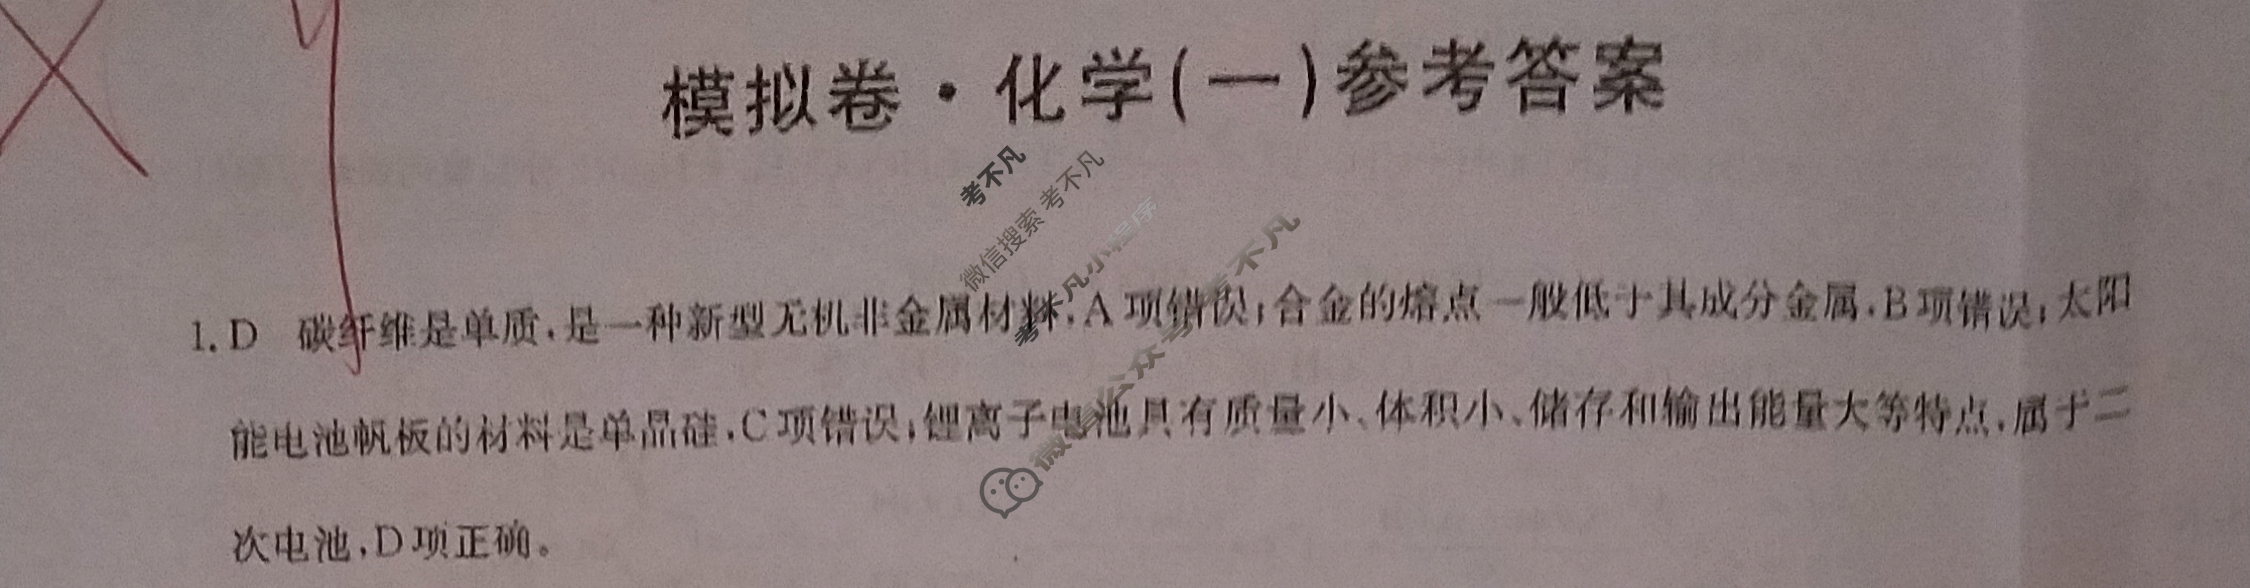 模拟卷·化学(一)参考答案
考不凡
微信搜索 考不凡
考不凡小程序
微信公众号 考不凡
1. D 碳纤维是单质,是一种新型无机非金属材料,A项错误;合金的熔点一般低于其成分金属,B项错误;太阳
能电池帆板的材料是单晶硅,C项错误;锂离子电池具有质量小、体积小、储存和输出能量大等特点,属于二
次电池,D项正确。